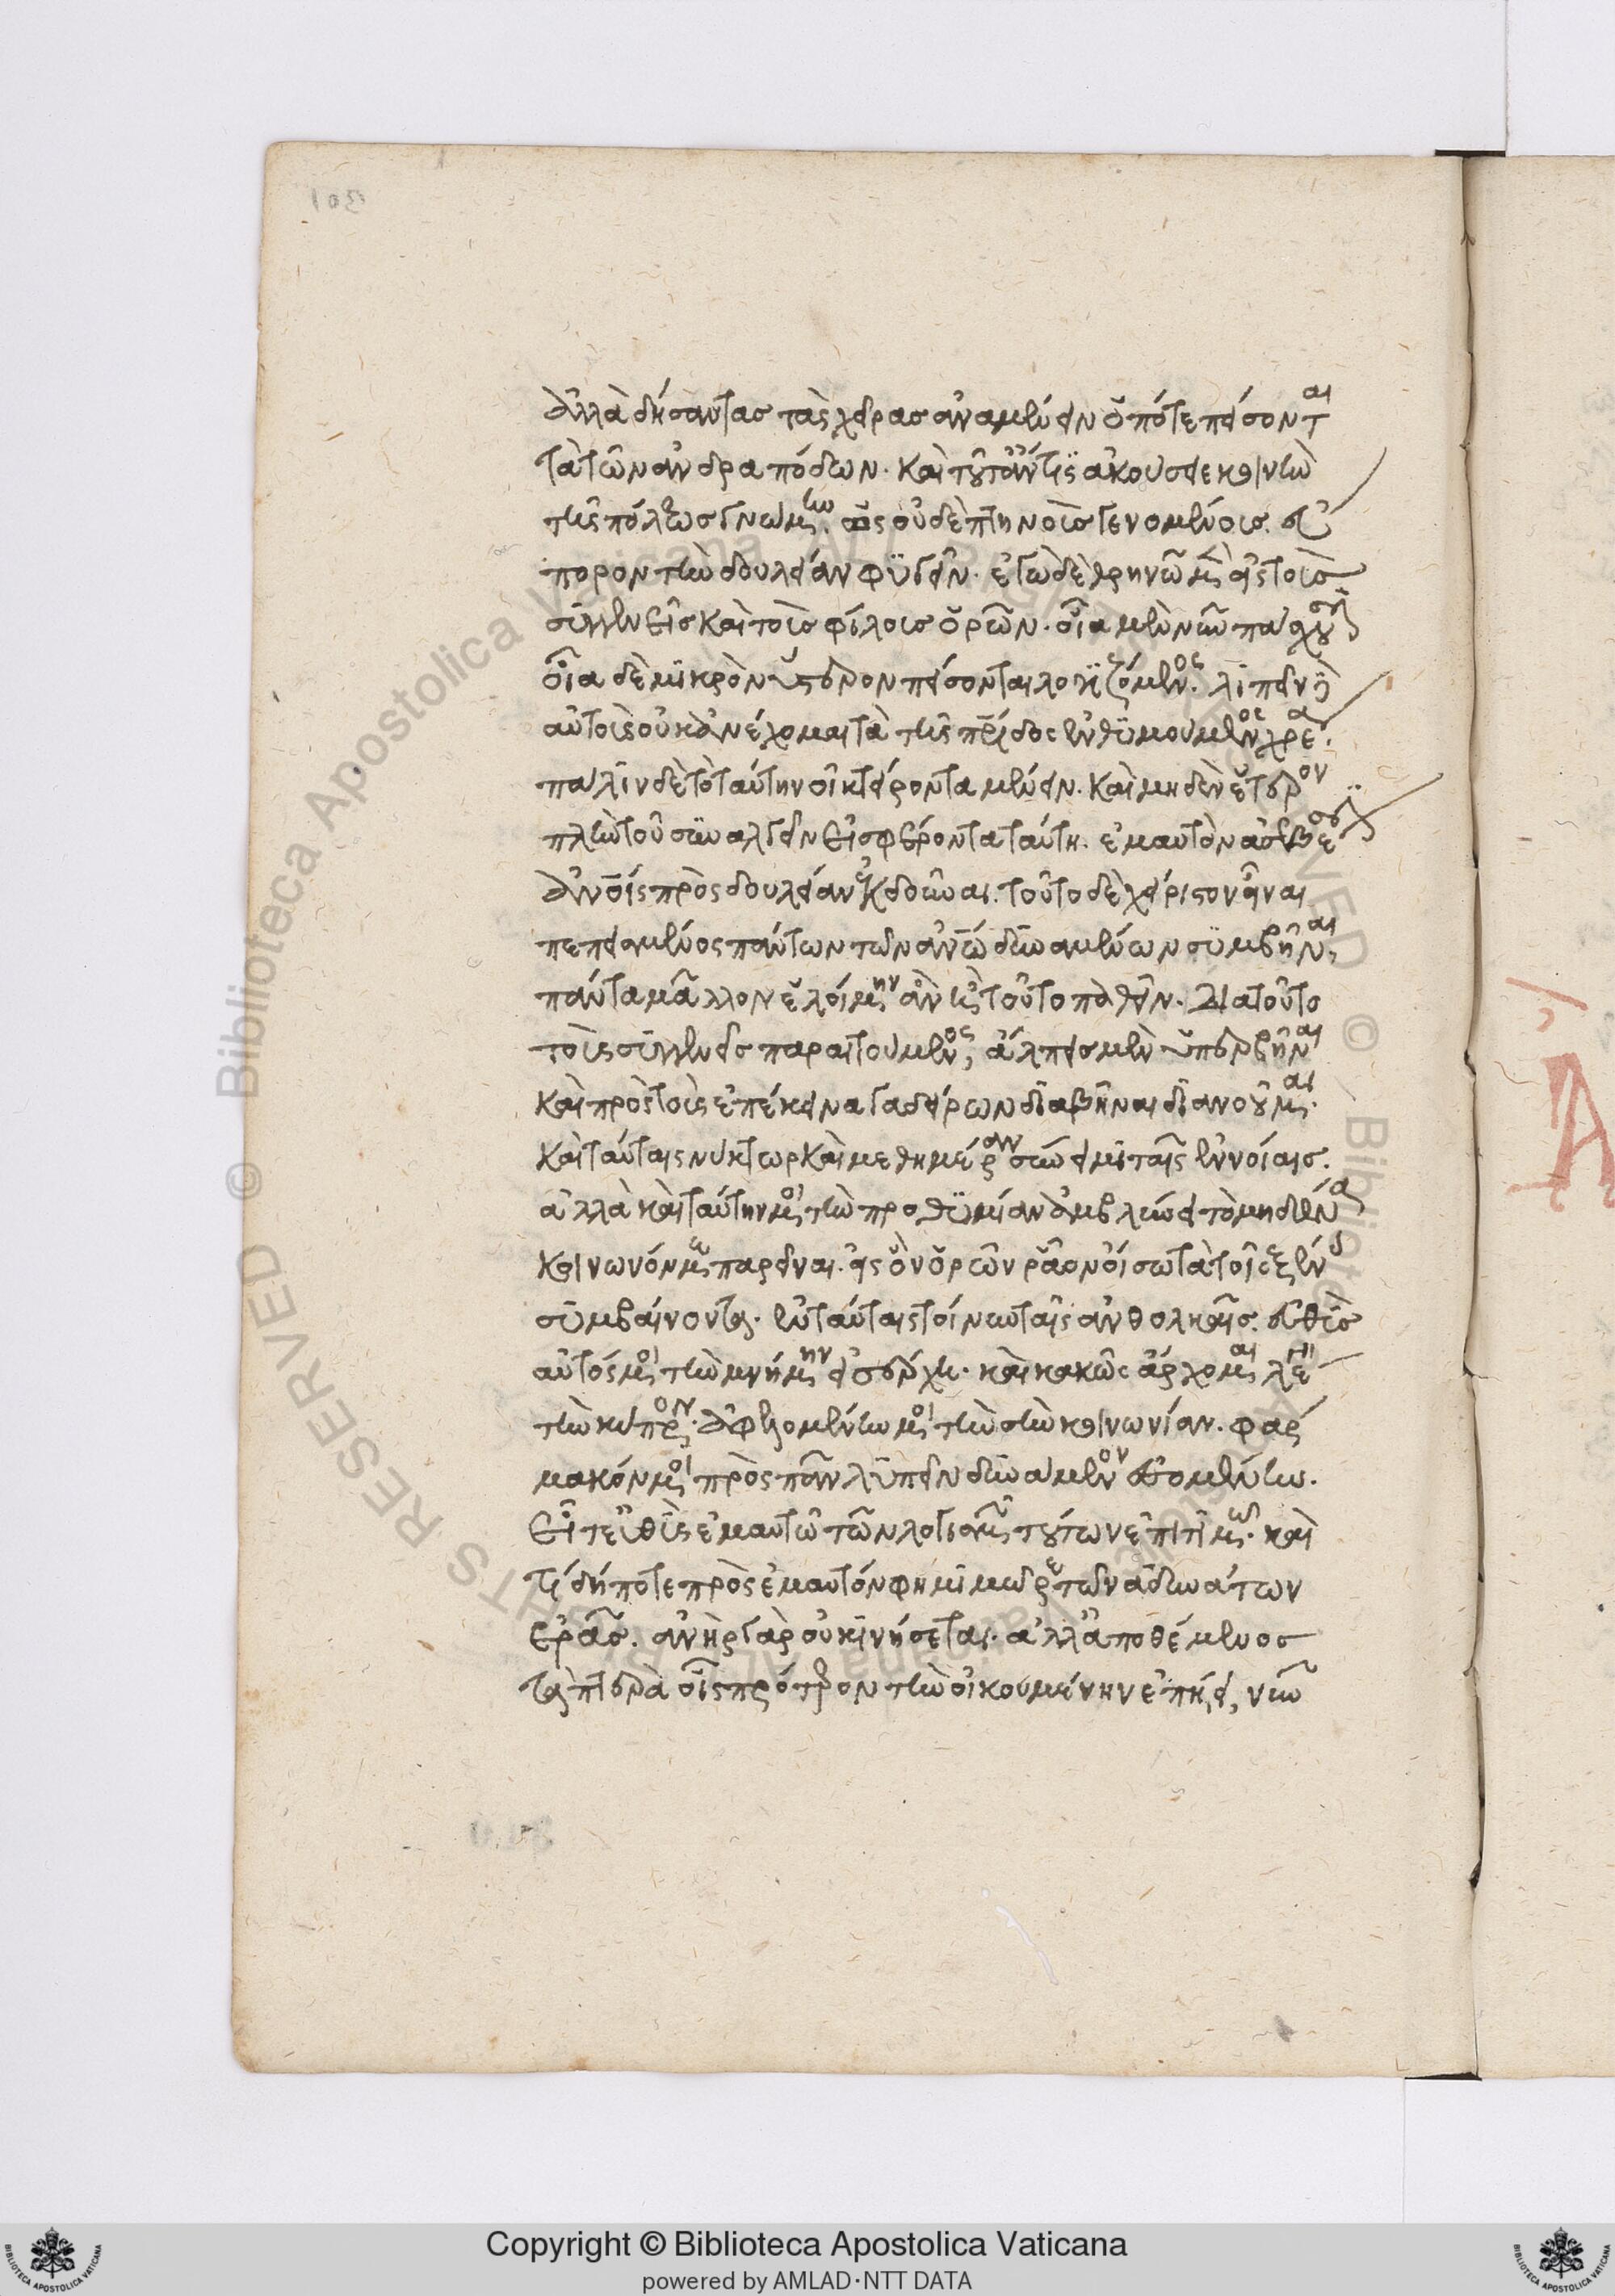 ἀλλὰ δήσαντας τὰς χεῖρας ἀναμένειν ὁπότε πείσονται
τὰ τῶν ἀνδραπόδων. καὶ τοῦτ' ἄντις ἀκούσειε κοινὴν
τῆς πόλεως γνώμην. ὡς οὐδὲ πτηνοῖς γενομένοις εὔ
πορον τὴν δουλείαν φυγεῖν. ἐγὼ δὲ θρηνῶ μὲν εἰς τοὺς
συγγενεῖς καὶ τοὺς φίλους ὁρῶν. οἷα μὲν νῦν πάσχουσι
οἷα δὲ μικρὸν ὕστερον πείσονται λογιζόμενος. λιπεῖν δὲ
αὐτοὺς οὐκ ἀνέχομαι τὰ τῆς πατρίδος ἐνθυμούμενος χρέα.
πάλιν δὲ τὸ ταύτην οἰκτείροντα μένειν. καὶ μηδὲν ἕτερον
πλὴν τοῦ συναλγεῖν εἰσφέροντα ταύτῃ. ἐμαυτὸν ἀσεβέσι
ἀνοῖς πρὸς δουλείαν ἐκδοῦναι. τοῦτο δὲ χείριστον εἶναι
πεπεισμένος πάντων τῶν ἀνῳ δυναμένων συμβῆναι,
πάντα μᾶλλον ἑλοίμην ἂν ἢ τοῦτο παθεῖν. Διὰ τοῦτο
τοὺς συγγενεῖς παραιτούμενος, ἄλπεις μὲν ὑπερβῆναι
καὶ πρὸς τοὺς ἐπέκεινα γαδείρων διαβῆναι διανοοῦμαι.
καὶ ταύταις νύκτωρ καὶ μεθημέραν σύνειμι ταῖς ἐννοίαις.
ἀλλὰ καὶ ταύτην μοι τὴν προθυμίαν ἀμβλύνει τὸ μηδένα
κοινωνόν με παρεῖναι. εἰς ὃν ὁρῶν ῥᾷον οἴσω τὰ τοῖς ξένοις
συμβαίνοντα. ἐν ταύταις τοίνυν ταῖς ἀνθολκαῖς. εὐθὺς
αὐτός μοι τὴν μνήμην εἰσέρχῃ. καὶ κακῶς ἄρχομαι λέγειν
τὴν κύπρον. ἀφελομένην μοι τὴν σὴν κοινωνίαν. φάρ
μακόν μοι πρὸς πᾶν λυπεῖν δυνάμενον ἐσομένην.
Εἶτ' εὐθὺς ἐμαυτῷ τῶν λογισμῶν τούτων ἐπιτιμῶ. καὶ
τί δήποτε πρὸς ἐμαυτόν φημι μωρὲ τῶν ἀδυνάτων
ἐρᾷς. ἀνὴρ γὰρ οὐ κινήσεται. ἀλλ' ἀποθέμενος
τὰ πτερὰ οἷς πρότερον τὴν οἰκουμένην ἐπῄει, νῦν